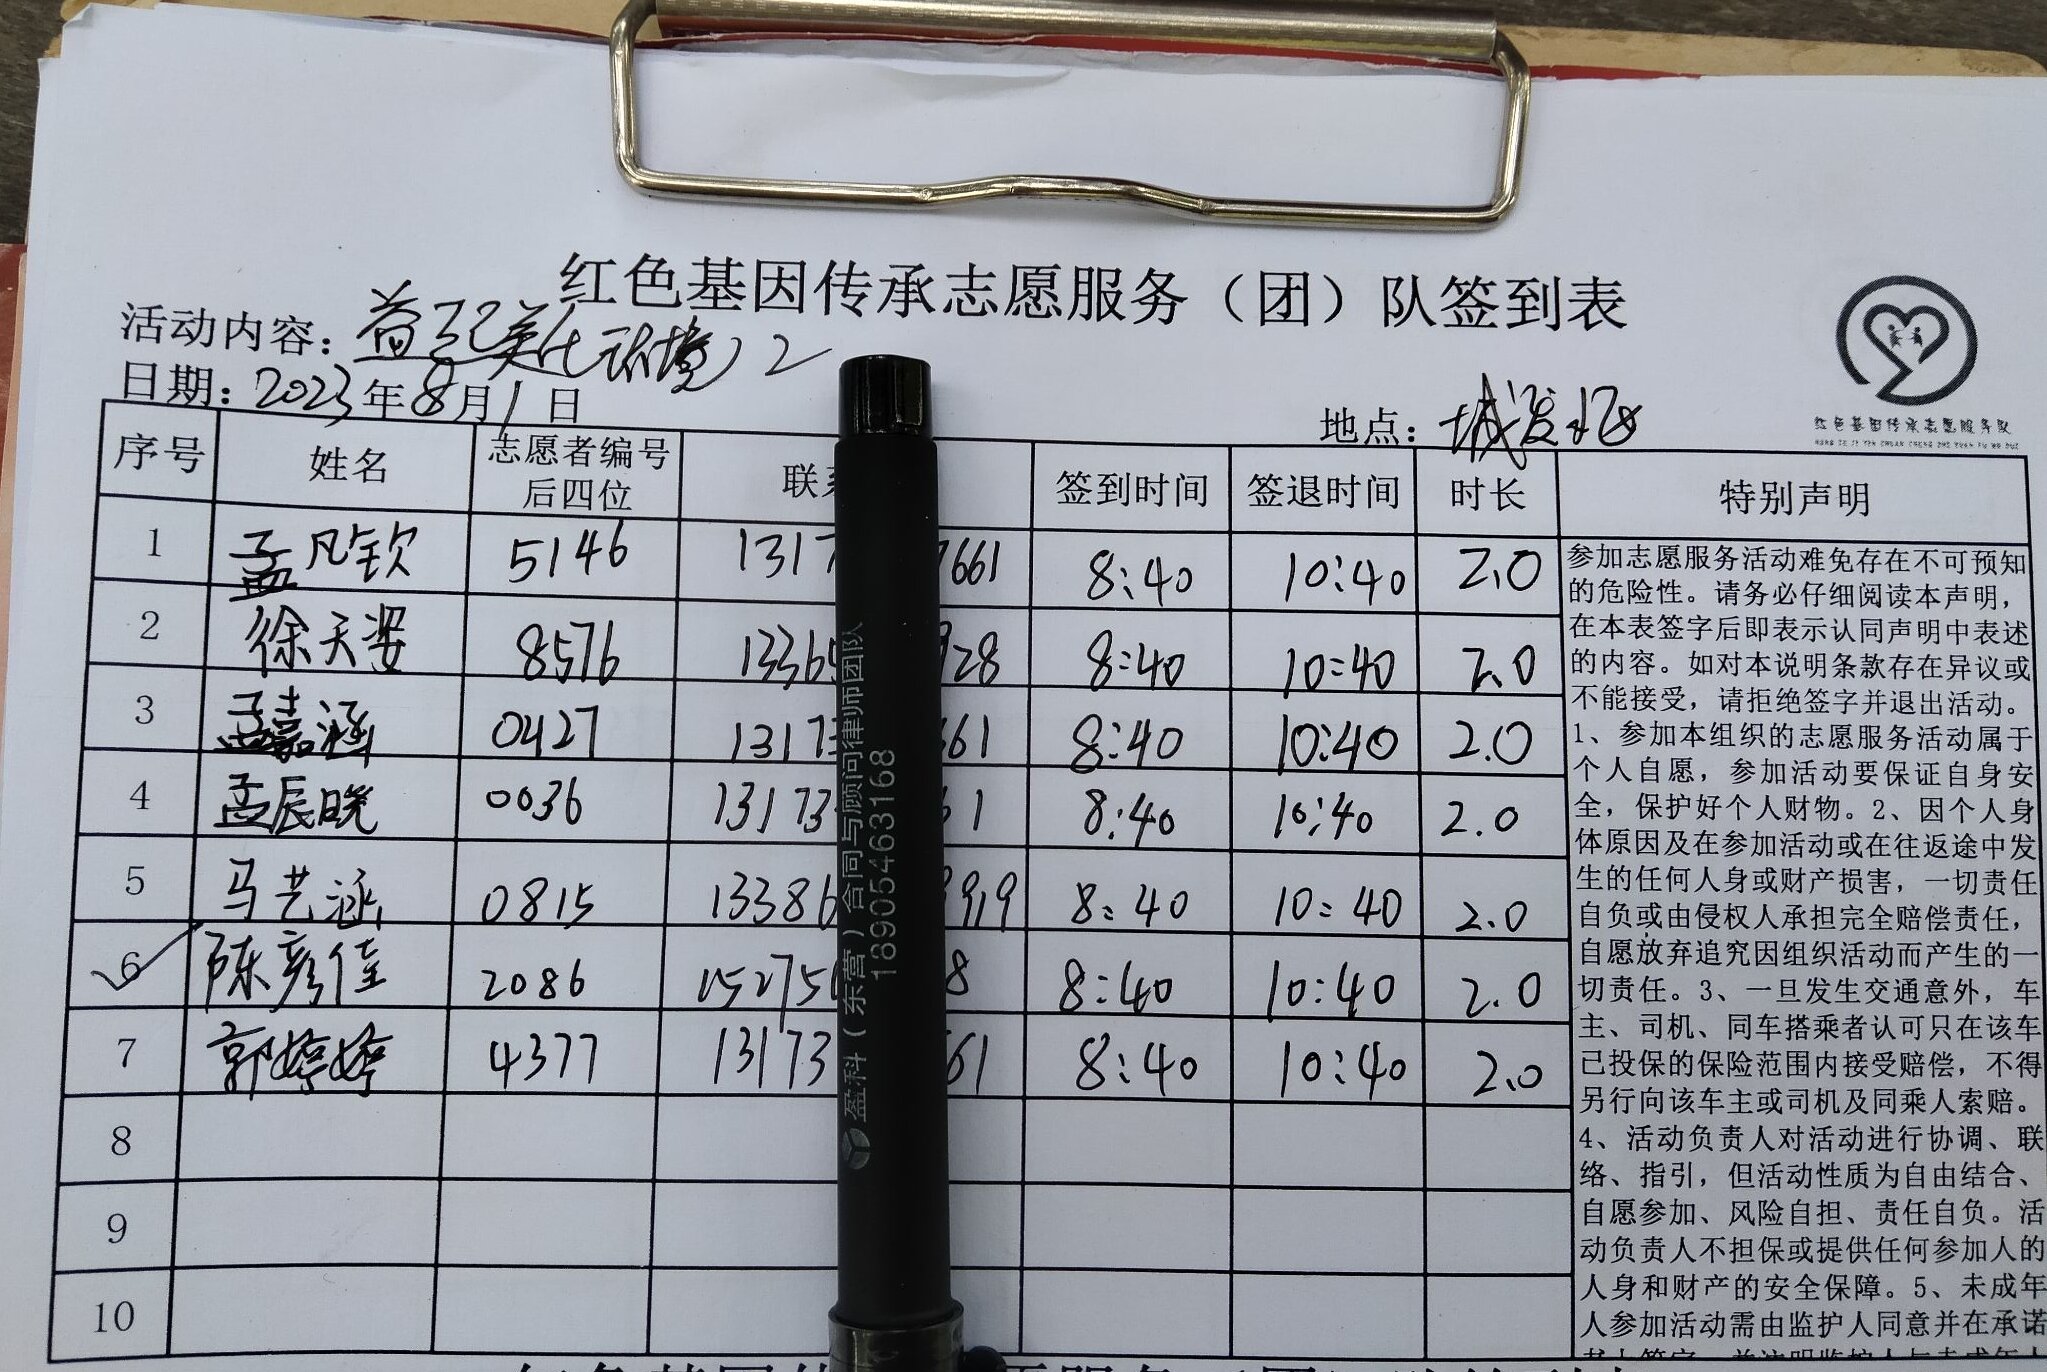 红色基因传承志愿服务（团）队签到表
活动内容：益起美化环境）2
日期：2023年8月1日
地点：城发
红色基因传承志愿服务队
序号 姓名 志愿者编号后四位 联系 签到时间 签退时间 时长 特别声明
1 孟凡钦 5146 1317 661 8:40 10:40 2.0
2 徐天姿 8576 1336 928 8:40 10:40 2.0
3 孟嘉涵 0427 1317 661 8:40 10:40 2.0
4 孟辰晓 0036 13173 61 8:40 10:40 2.0
5 马艺涵 0815 13386 9919 8:40 10:40 2.0
6 陈彦佳 2086 15275 8 8:40 10:40 2.0
7 郭婷婷 4377 13173 61 8:40 10:40 2.0
8
9
10
参加志愿服务活动难免存在不可预知
的危险性。请务必仔细阅读本声明，
在本表签字后即表示认同声明中表述
的内容。如对本说明条款存在异议或
不能接受，请拒绝签字并退出活动。
1、参加本组织的志愿服务活动属于
个人自愿，参加活动要保证自身安
全，保护好个人财物。2、因个人身
体原因及在参加活动或在往返途中发
生的任何人身或财产损害，一切责任
自负或由侵权人承担完全赔偿责任，
自愿放弃追究因组织活动而产生的一
切责任。3、一旦发生交通意外，车
主、司机、同车搭乘者认可只在该车
已投保的保险范围内接受赔偿，不得
另行向该车主或司机及同乘人索赔。
4、活动负责人对活动进行协调、联
络、指引，但活动性质为自由结合、
自愿参加、风险自担、责任自负。活
动负责人不担保或提供任何参加人的
人身和财产的安全保障。5、未成年
人参加活动需由监护人同意并在承诺
盈科（东营）合同与顾问律师团队
18905463168